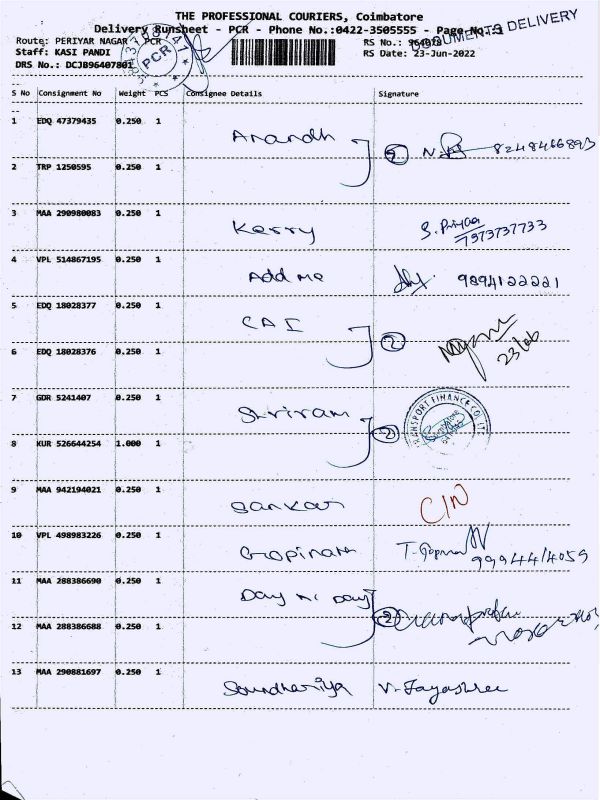 THE PROFESSIONAL COURIERS, Coimbatore
Delivery Runsheet - PCR - Phone No.:0422-3505555 - Page No.:1
DOCUMENTS DELIVERY
Route: PERIYAR NAGAR - PCR
RS No.:
Staff: KASI PANDI
RS Date: 23-Jun-2022
DRS No.: DCJB96407801
PCR
S No Consignment No Weight PCS Consignee Details Signature
1 EDQ 47379435 0.250 1 Anandh 2 8248466893
2 TRP 1250595 0.250 1
3 MAA 290980083 0.250 1 Kerry S. Priyaa
7373737733
4 VPL 514867195 0.250 1 Add Me 9894122221
5 EDQ 18028377 0.250 1 CAI 2
6 EDQ 18028376 0.250 1 23/06
7 GDR 5241407 0.250 1 Shriram 2 TRANSPORT FINANCE CO. LTD
8 KUR 526644254 1.000 1
9 MAA 942194021 0.250 1 Sankar C/N
10 VPL 498983226 0.250 1 Gopinath T. Gopinath
9994414059
11 MAA 288386690 0.250 1 Day 2
12 MAA 288386688 0.250 1
13 MAA 290881697 0.250 1 Soundhariya V. Jayashree